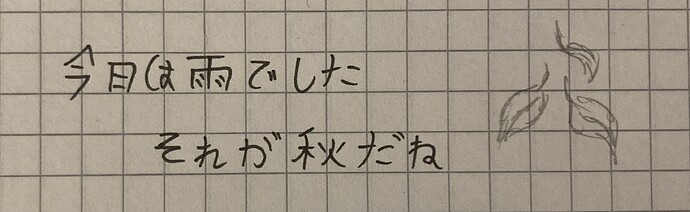 今日は雨でした
それが秋だね